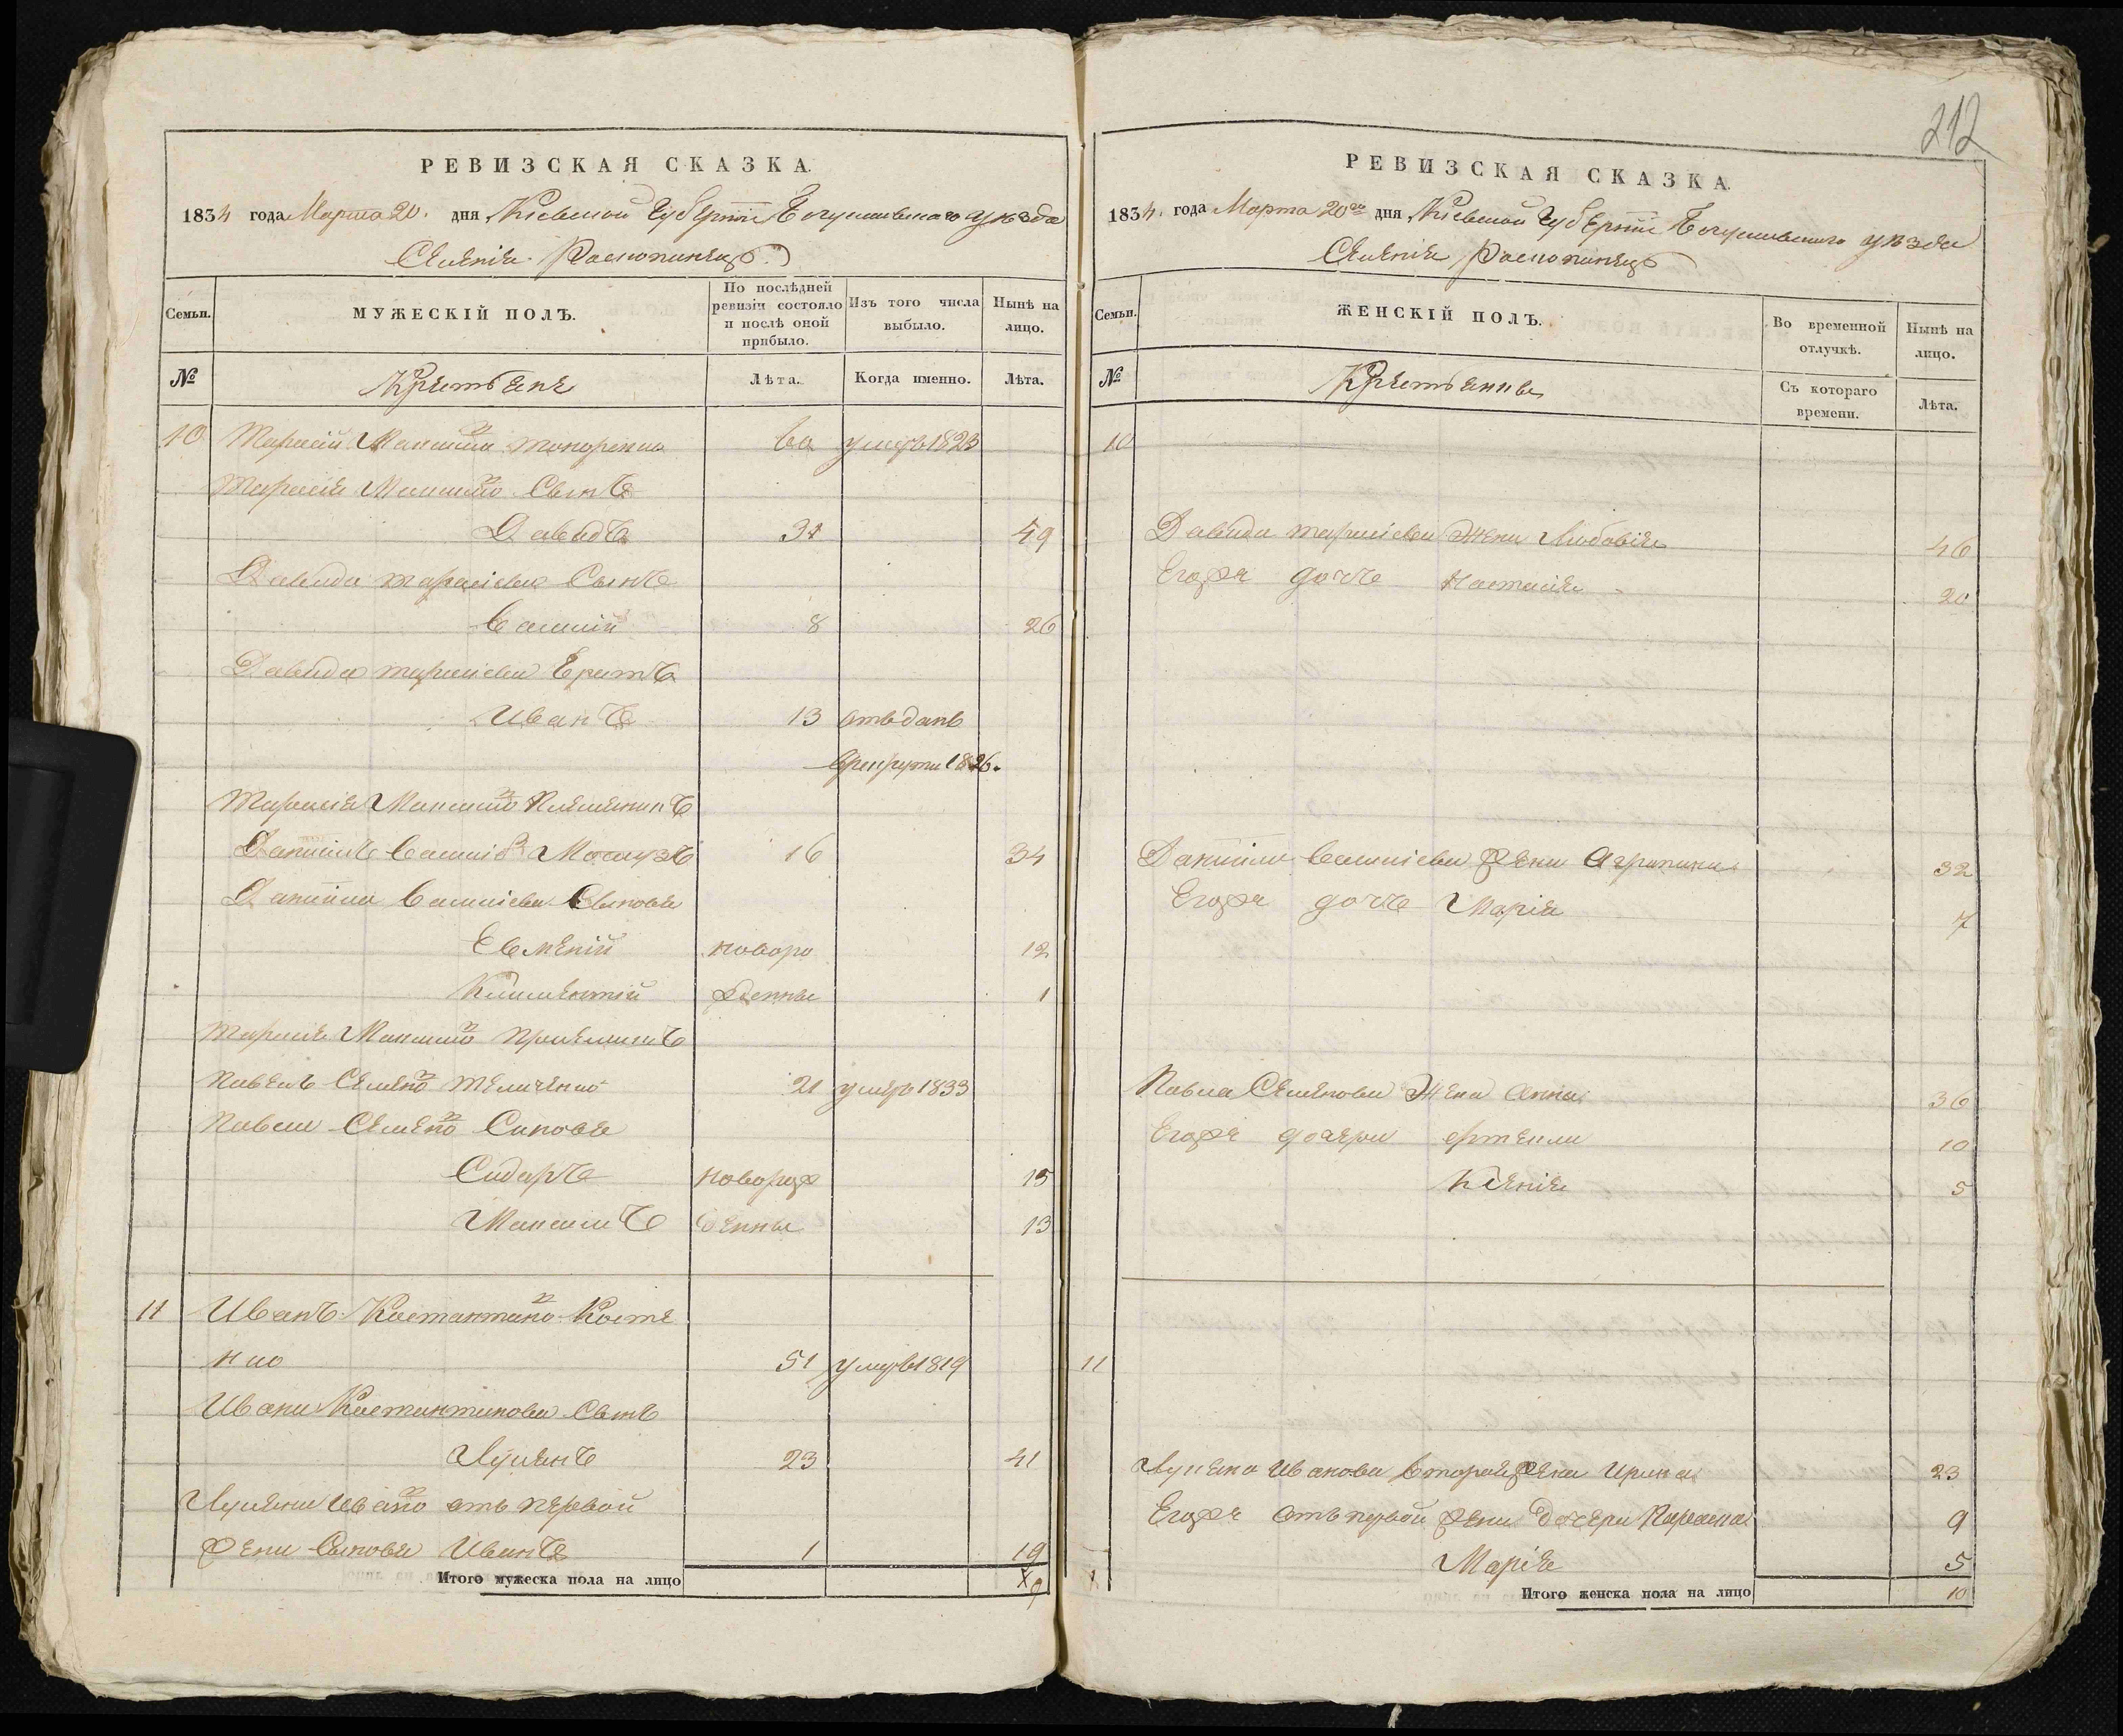 РЕВИЗСКАЯ СКАЗКА.
1834 года Марта 20. дня Кіевской Губерніи Богуславского уѣзда
Селенія Роскопинецъ
Семьи.
МУЖЕСКІЙ ПОЛЪ.
По послѣдней ревизіи состояло и послѣ оной прибыло.
Изъ того числа выбыло.
Нынѣ на лицо.
№
Крестьяне
Лѣта.
Когда именно.
Лѣта.
10 Тарасій Максимов 60 умеръ 1823
Тарасія Максимо Сынъ
Давидъ 31 49
Давида Тарасіева Сынъ
Василій 8 26
Давида Тарасіева Братъ
Иванъ 13 отъданъ
врекруты 1826.
Тарасія Максимо Племенникъ
Даниилъ Василіов 16 34
Даниила Василіева Сыновья
Евмений новоро 12
Климентій жденны 1
Тарасія Максимо Пріемышъ
Павелъ Семено Теличенко 21 умеръ 1833
Павла Семено Синовья
Сидоръ новорож 15
Максимъ денны 13
11 Иванъ Костантино Косте
нко 51 умеръ 1819
Ивана Костантинова Сынъ
Лукянъ 23 41
Лукяна Ивано отъ первой
жены Сыновья Иванъ 1 19
Итого мужеска пола на лицо 9
212
РЕВИЗСКАЯ СКАЗКА.
1834. года Марта 20го дня Кіевской Губерніи Богуславского уѣзда
Селенія Роскопинецъ
Семьи.
ЖЕНСКІЙ ПОЛЪ.
Во временной отлучкѣ.
Нынѣ на лицо.
№
Крестьянки
Съ котораго времени.
Лѣта.
10
Давида Тарасіева Жена Любовія 46
Егожъ дочь Настасія 20
Даниила Василіева жена Агрипина 32
Егожъ дочь Марія 7
Павла Семенова Жена Анна 36
Егожъ дочери 10
Ксенія 5
11
Лукяна Иванова вторая жена Ирина 23
Егожъ Отъ первой жены дочери Параска 9
Марія 5
Итого женска пола на лицо 10